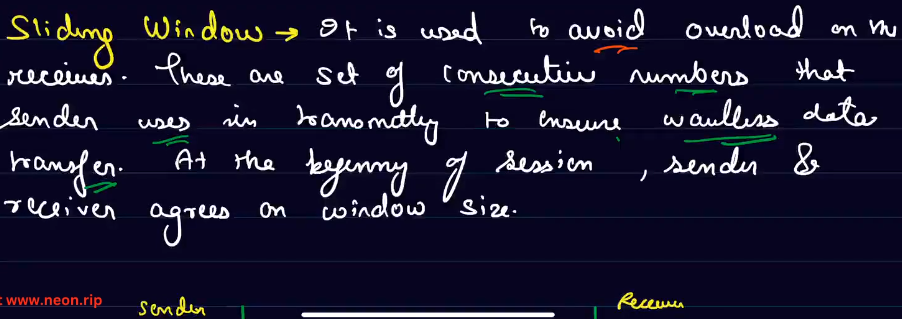 Sliding Window → It is used to avoid overload on the
receiver. These are set of consecutive numbers that
sender uses in transmitting to ensure data
transfer. At the beginning of session, sender &
receiver agrees on window size.
: www.neon.rip
sender Receiver